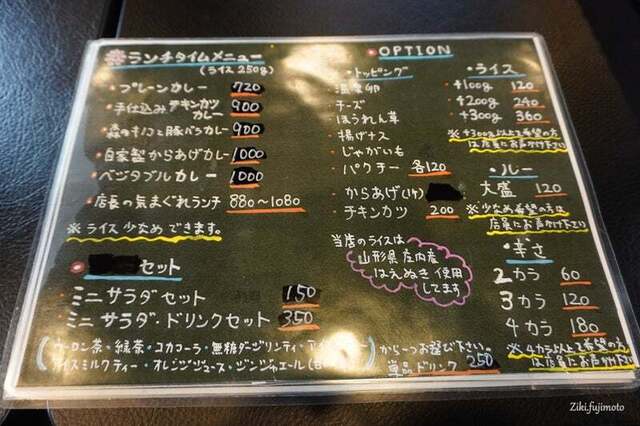 ランチタイムメニュー
(ライス250g)
・プレーンカレー 720
・手仕込みチキンカツカレー 900
・森のキノコと豚バラカレー 900
・自家製からあげカレー 1000
・ベジタブルカレー 1000
・店長の気まぐれランチ 880〜1080
※ライス少なめできます。
セット
・ミニサラダセット 150
・ミニサラダ・ドリンクセット 350
ウーロン茶・緑茶・コカコーラ・無糖ダージリンティ・
アイスミルクティー・オレンジジュース・ジンジャエール
から一つお選び下さい。
単品ドリンク 250
OPTION
・トッピング
・温泉卵
・チーズ
・ほうれん草
・揚げナス
・じゃがいも
・パクチー 各120
・からあげ(1ケ)
・チキンカツ 200
当店のライスは
山形県庄内産
はえぬき使用
してます
・ライス
+100g 120
+200g 240
+300g 360
※+300g以上ご希望の方
は店員にお声がけ下さい
・ルー
大盛 120
※少なめ希望の方は
店員にお声がけ下さい
・辛さ
2カラ 60
3カラ 120
4カラ 180
※4カラ以上ご希望の方
は店員にお声がけ下さい
Ziki.fujimoto